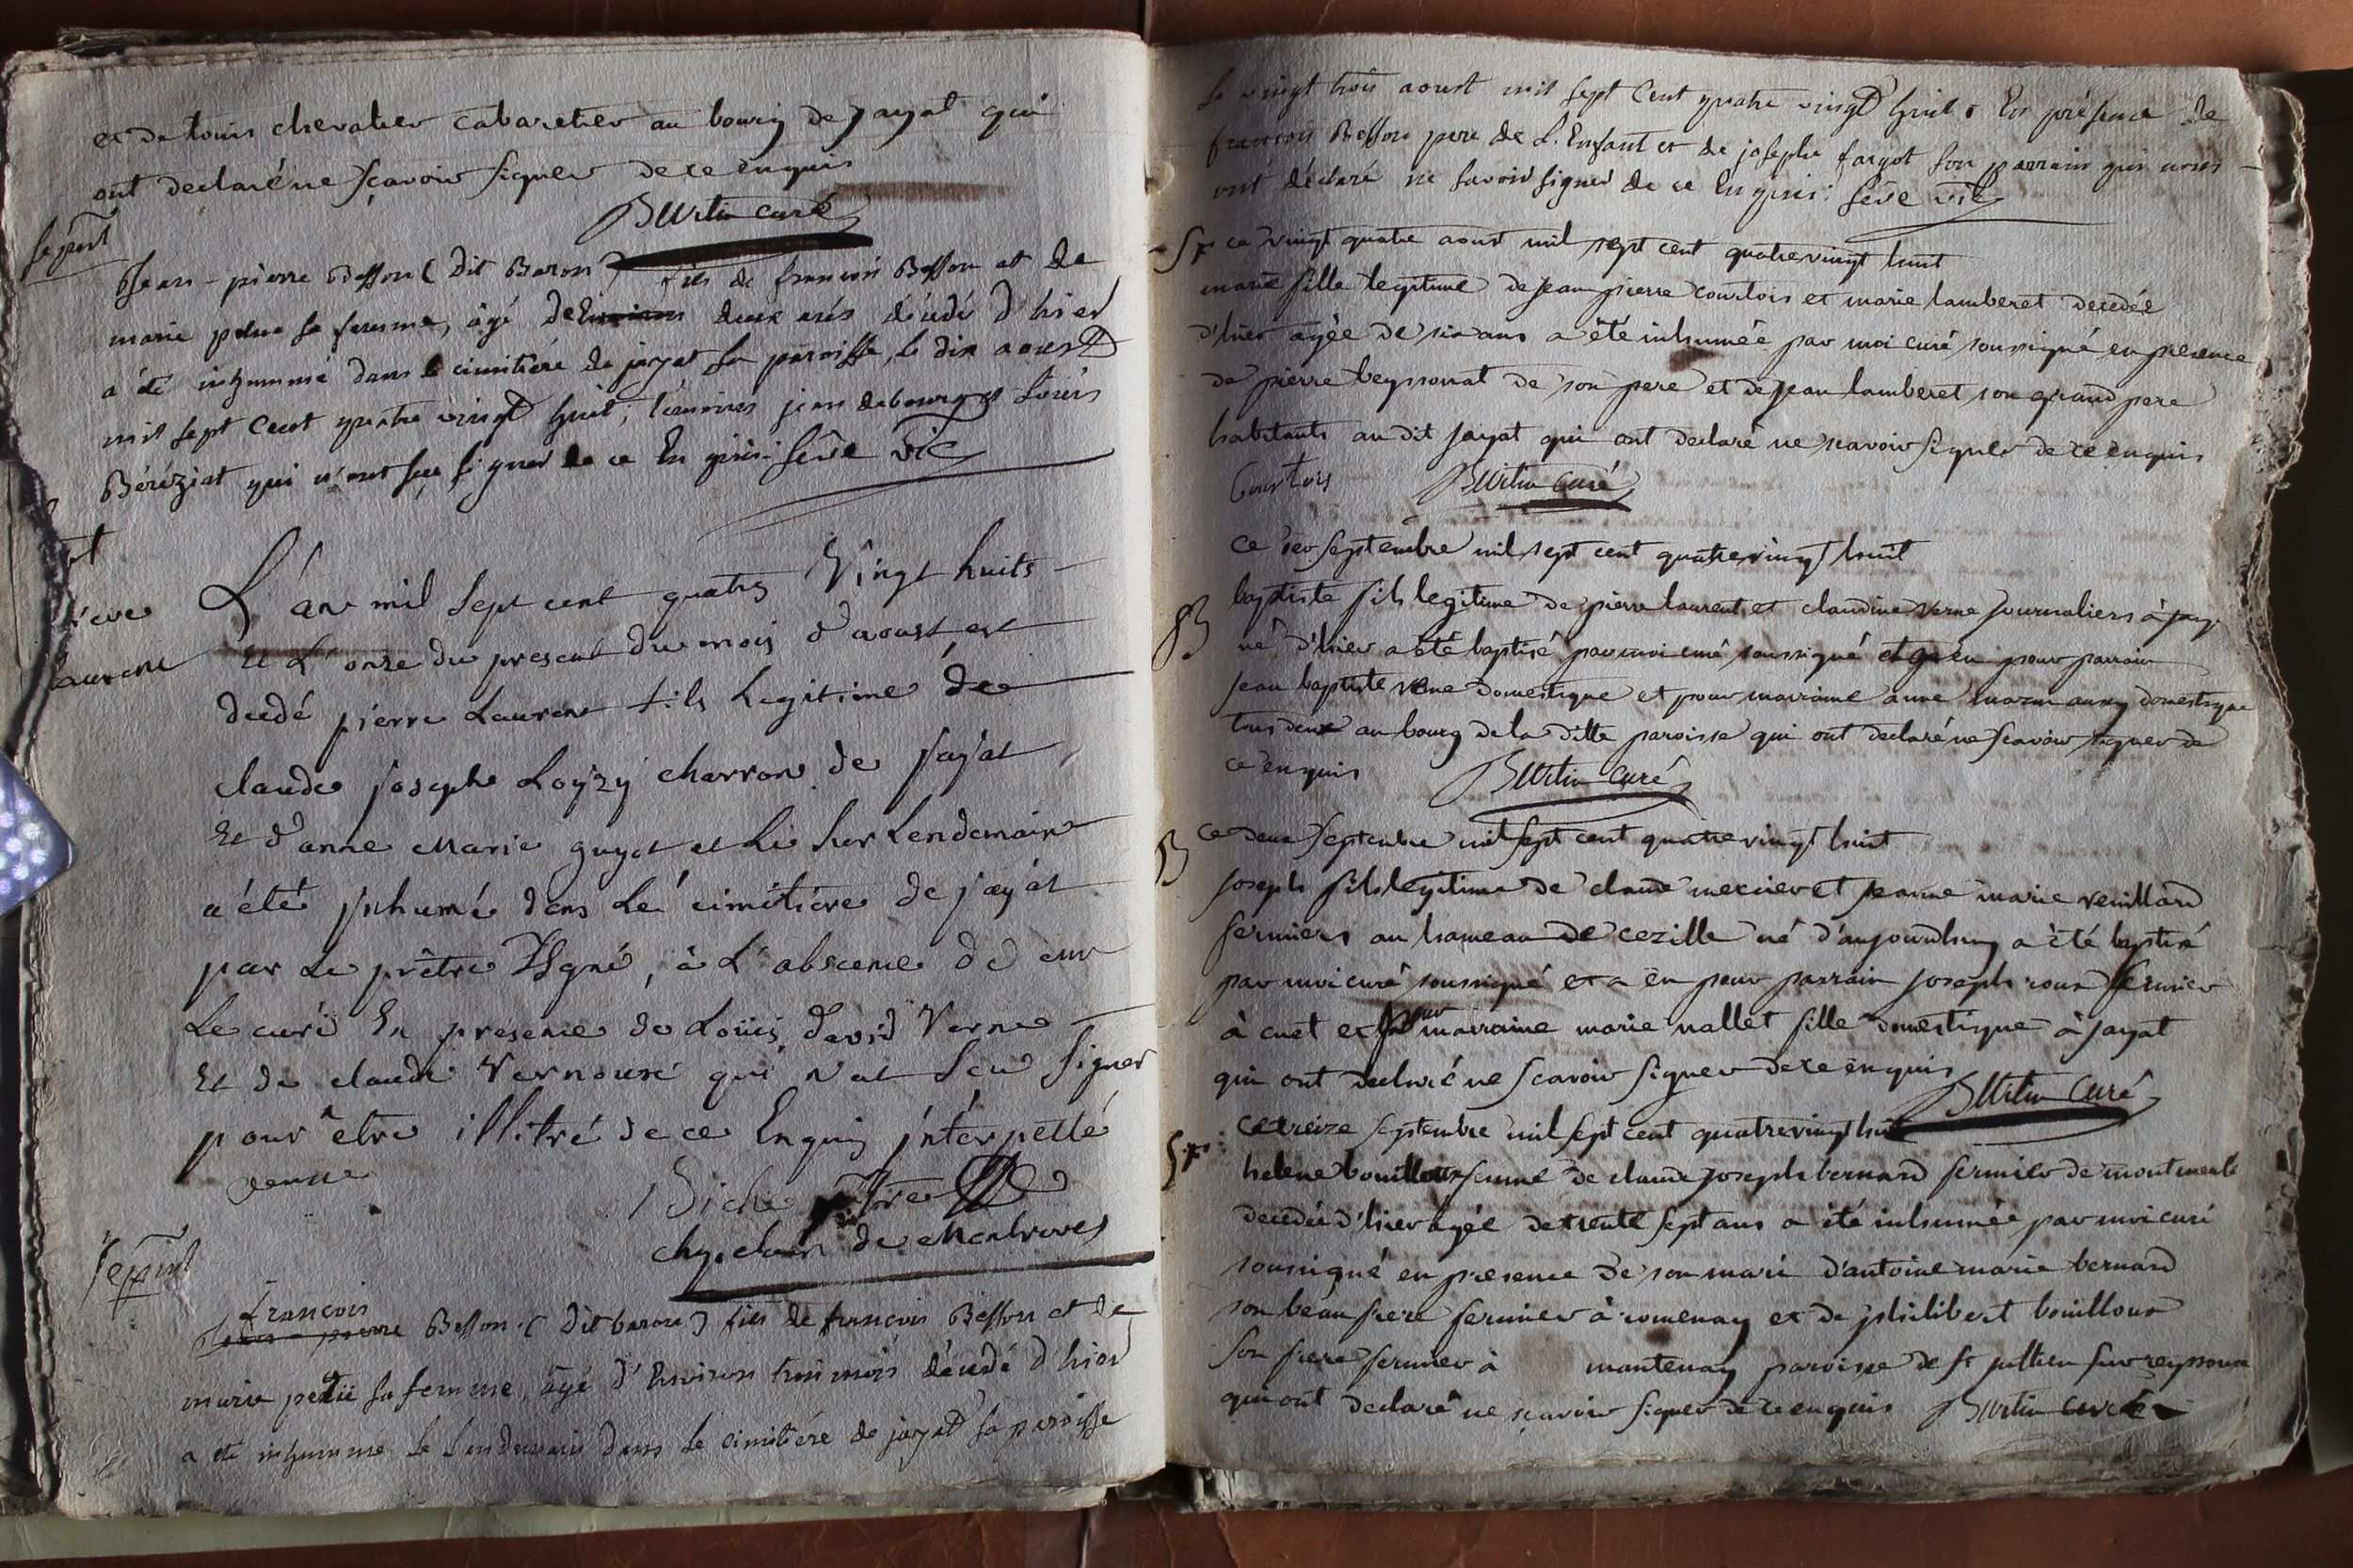 et de louis chevalier cabaretier au bourg de jayat qui
ont declaré ne sçavoir signer de ce enquis
Burtin curé
sepult
Jean-pierre Besson (dit Baron) fils de françois Besson et de
marie sa femme, âgé de deux ans décédé d'hier
a été inhummé dans le cimitiére de jayat sa paroisse, le dix aoust
mil sept cent quatre vingt huit; témoins jean debourg et Louis
Béréziat qui n'ont sçu signer de ce En quis. Séve vic
L'an mil sept cent quatre Vingt huits
Laurent
Et L'onze du present du mois d'aoust est
decdé pierre Laurent fils Legitime de
claude joseph Loyzy charron de jayat
Et d'anne Marie guyot et Le Sur Lendemain
a été jnhumé dans Le cimitiére de jayat
par Le prêtre Ssgné, à L'absence de
Le curé En presence de Loüis david Verne
Et de claude Vernoux qui N'at Scu signer
pour être illitré de ce Enquis jntérpellé
verne
chapelain de Montrevel
sepult
françois
Jean-pierre Besson (dit baron) fils de françois Besson et de
marie sa femme, âgé d'Environ trois mois décédé d'hier
a été inhummé le lendemain dans le cimitiére de jayat sa paroisse
le vingt trois aoust mil sept Cent quatre vingt huit. En présence de
françois Besson pere de L'Enfant et de josephe fargot son parrain qui nous
ont déclaré ne savoir signer de ce En quis. Séve vic
ce vingt quatre aoust mil sept cent quatrevingt huit
marie fille legitime de jean pierre courtois et marie lamberet decedée
d'hier agée de six ans a été inhumée par moi curé soussigné en presence
de pierre beyssonat de son pere et de jean lamberet son grand pere
habitants au dit jayat qui ont declaré ne scavoir signer de ce enquis
Courtois Burtin curé
ce 1er septembre mil sept cent quatrevingt huit
B baptiste fils legitime de pierre laurent et claudine verne journaliers à jay
né d'hier a été baptisé par moi curé soussigné et a eu pour parrain
jean baptiste verne domestique et pour marraine anne domestique
tous deux au bourg de la ditte paroisse qui ont declaré ne scavoir signer de
ce enquis Burtin curé
B ce deux septembre mil sept cent quatrevingt huit
joseph fils legitime de claude mercier et jeanne marie veuillard
fermiers au hameau de cezille né d'aujourdhuy a été baptisé
par moi curé soussigné et a eu pour parrain joseph roux fermier
à cuet et pour marraine marie nallet fille domestique à jayat
qui ont declaré ne scavoir signer de ce enquis
Burtin Curé
ce treize septembre mil sept cent quatrevingt huit
helene bouilloux femme de claude joseph bernard fermier de
decedée d'hier agée de trente sept ans a été inhumée par moi curé
soussigné en presence de son mari d'antoine marie bernard
son beau frere fermier à romenay et de philibert bouilloux
son frere fermier à mantenay paroisse de st jullien sur reyssouze
qui ont declaré ne scavoir signer de ce enquis Burtin curé